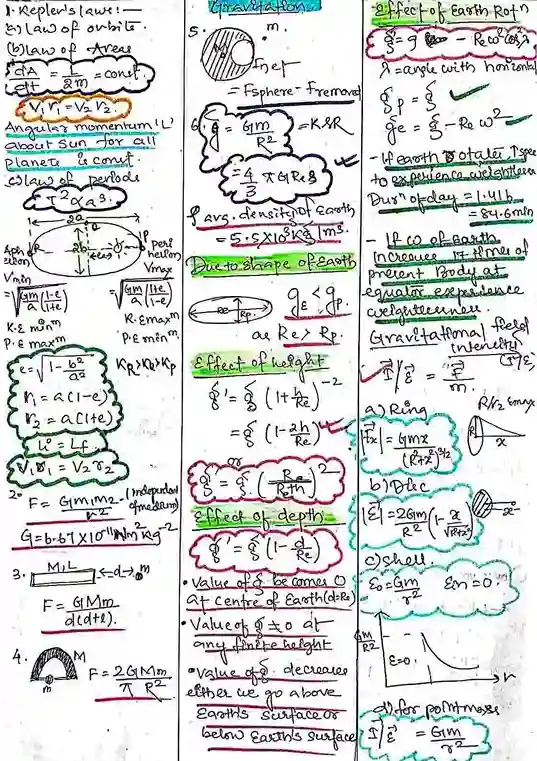 1. Kepler's laws:—
a) law of orbits.
(b) law of Areas
dA/dt = L/2m = const.
V₁r₁ = V₂r₂.
Angular momentum (L)
about sun for all
planets is const.
c) law of periods
T² ∝ a³.
2a
2b
Aphelion
perihelion
Vmin
Vmax
= √(GM/a (1-e/1+e))
= √(GM/a (1+e/1-e))
K.E minm
K.E maxm
P.E maxm
P.E minm
e = √(1 - b²/a²)
r₁ = a(1-e)
r₂ = a(1+e)
Li = Lf.
V₁r₁ = V₂r₂
2.
F = Gm₁m₂/r² - (independent of medium)
G = 6.67 X 10⁻¹¹ Nm² Kg⁻²
3. M,L d m
F = GMm/d(d+L).
4. M
m
F = 2GMm/π R²
Gravitation
5. m.
M
Fnet
= Fsphere - Fremoved
6. g = GM/R² = K&R
= 4/3 π G Re ρ
ρ avg. density of Earth
= 5.5 X 10³ Kg/m³.
Due to shape of Earth
Re Rp
gE < gp.
as Re > Rp.
Effect of height
g' = g (1 + h/Re)⁻²
= g (1 - 2h/Re)
or
g' = g (Re/Re+h)²
Effect of depth
g' = g (1 - d/Re)
• Value of g becomes 0
at centre of Earth (d=Re)
• Value of g ≠ 0 at
any finite height
• Value of g decreases
either we go above
Earth's surface or
below Earth's surface
Effect of Earth Rotn
g' = g - Re ω² cos²λ
λ = angle with horizontal
gp = g
ge = g - Re ω²
- If earth rotates
to experience weightlessness
Dusn of day = 1.41 h
= 84.6 min
- If ω of Earth
increases 17 times of
present Body at
equator experience
weightlessness.
Gravitational field
intensity
(I/E)
I/E = F/m.
a) Ring
R/√2 Emax
R x
|Ex| = Gmx/(R²+x²)^3/2
b) Disc
x
|E| = 2Gm/R² (1 - x/√R²+x²)
c) shell.
Eo = Gm/r² Ein = 0.
GM/R²
E=0.
r
d) for point mass
I/E = Gm/r²